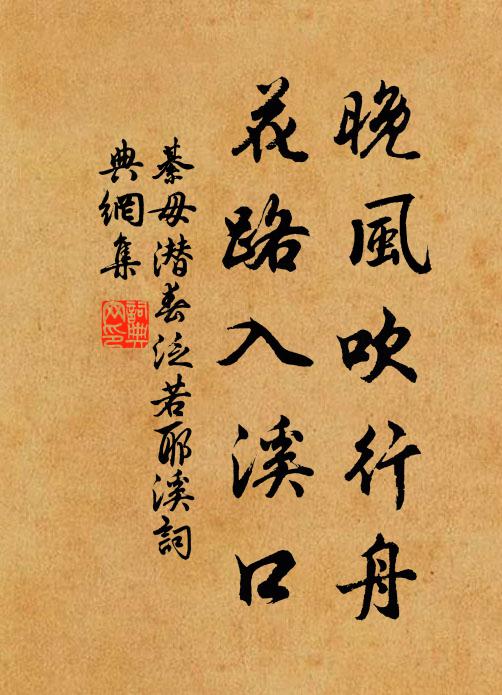 晚風吹行舟
花路入溪口
綦毋潜春泛若耶溪詞
典網集
詞典
网印